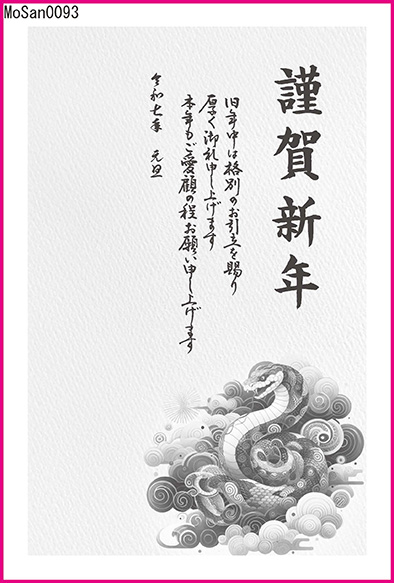 MoSan0093
謹賀新年
旧年中は格別のお引立を賜り
厚く御礼申し上げます
本年もご愛顧の程お願い申し上げます
令和七年 元旦